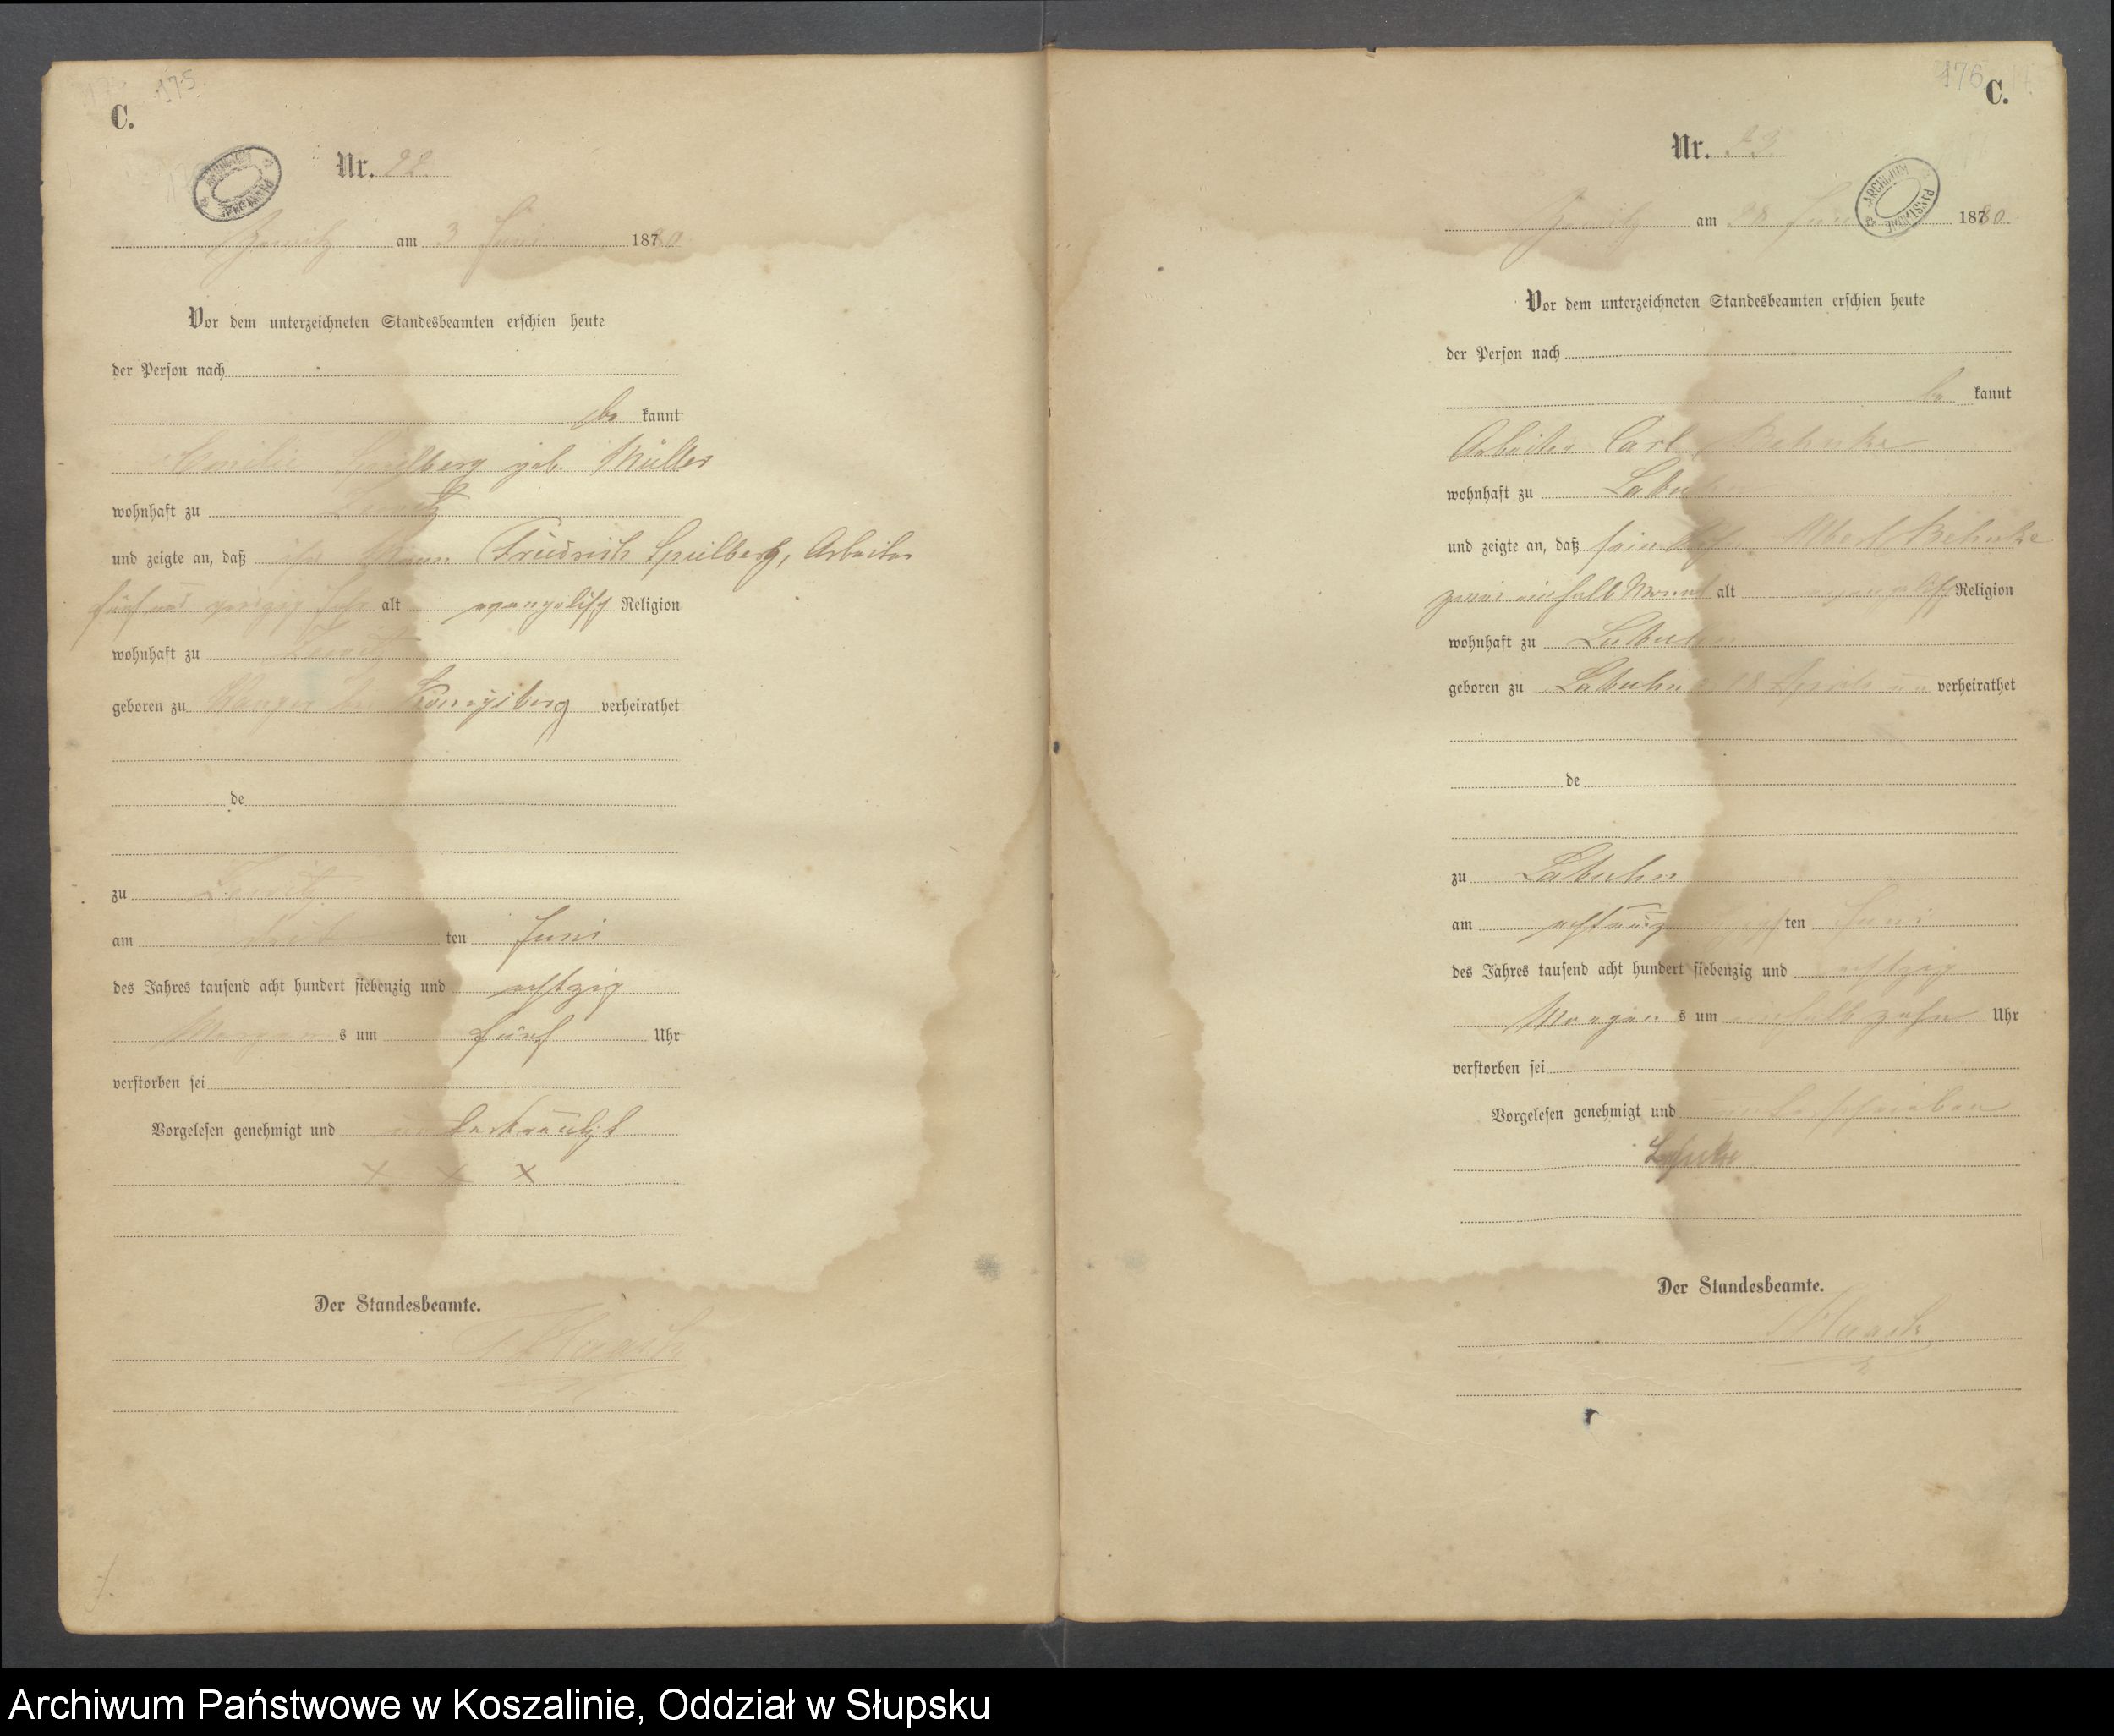 175
C.
Nr. 22.
Zewitz am 3 Juni 1880
Vor dem unterzeichneten Standesbeamten erschien heute
der Person nach
be kannt
Emilie Spielberg geb. Müller
wohnhaft zu Zewitz
und zeigte an, daß ihr Mann Friedrich Spielberg, Arbeiter
fünf und Jahr alt evangelisch Religion
wohnhaft zu Zewitz
geboren zu Königsberg verheirathet
de
zu Zewitz
am ten Juni
des Jahres tausend acht hundert siebenzig und achtzig
Morgen s um fünf Uhr
verstorben sei
Vorgelesen genehmigt und unterkreuzt
x x x
Der Standesbeamte.
176
C.
Nr. 23.
Zewitz am 28 Juni 1880
ARCHIWUM PAŃSTWOWE
Vor dem unterzeichneten Standesbeamten erschien heute
der Person nach
be kannt
Arbeiter Carl Behnke
wohnhaft zu Labuhn
und zeigte an, daß sein Sohn Albert Behnke
zwei einhalb Monat alt evangelisch Religion
wohnhaft zu Labuhn
geboren zu Labuhn 18 April un verheirathet
de
zu Labuhn
am achtundzwanzigsten Juni
des Jahres tausend acht hundert siebenzig und achtzig
Morgen s um einhalb zehn Uhr
verstorben sei
Vorgelesen genehmigt und unterschrieben
Der Standesbeamte.
Archiwum Państwowe w Koszalinie, Oddział w Słupsku